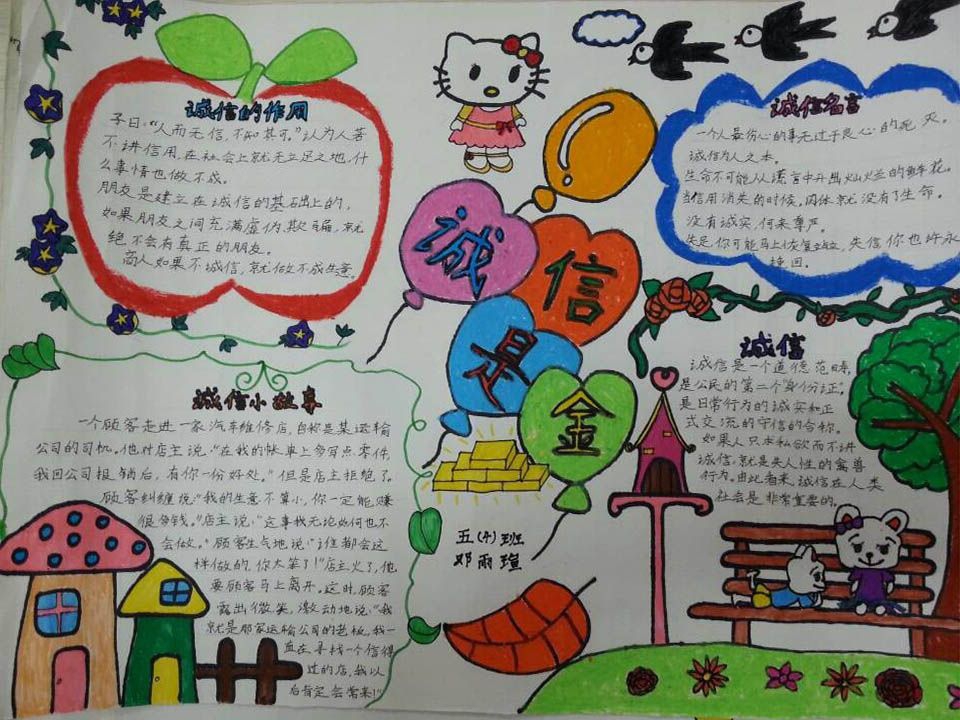 诚信的作用
子曰:“人而无信,不知其可。”认为人若
不讲信用,在社会上就无立足之地,什
么事情也做不成。
朋友是建立在诚信的基础上的,
如果朋友之间充满虚伪欺骗,就
绝不会有真正的朋友。
商人如果不诚信,就做不成生意。
诚信是金
诚信名言
一个人最伤心的事无过于良心的死灭。
诚信为人之本。
生命不可能从谎言中开出灿烂的鲜花。
当信用消失的时候,肉体就没有了生命。
没有诚实,何来尊严。
失足,你可能马上恢复站立,失信你也许永
挽回。
诚信小故事
一个顾客走进一家汽车维修店,自称是某运输
公司的司机。他对店主说:“在我的帐单上多写点零件,
我回公司报销后,有你一份好处。”但是店主拒绝了。
顾客纠缠说:“我的生意不算小,你一定能赚
很多钱。”店主说:“这事我无论如何也不
会做。”顾客生气地说:“谁都会这
样做的,你太笨了!”店主火了,他
要顾客马上离开。这时,顾客
露出微笑,激动地说:“我
就是那家运输公司的老板,我一
直在寻找一个信得
过的店,我以
后肯定会常来!”
诚信
诚信是一个道德范畴,
是公民的第二个“身份证”。
是日常行为的诚实和正
式交流的守信的合称。
如果人只求私欲而不讲
诚信,就是失人性的禽兽
行为。由此看来,诚信在人类
社会是非常重要的。
五(4)班
邓雨瑄